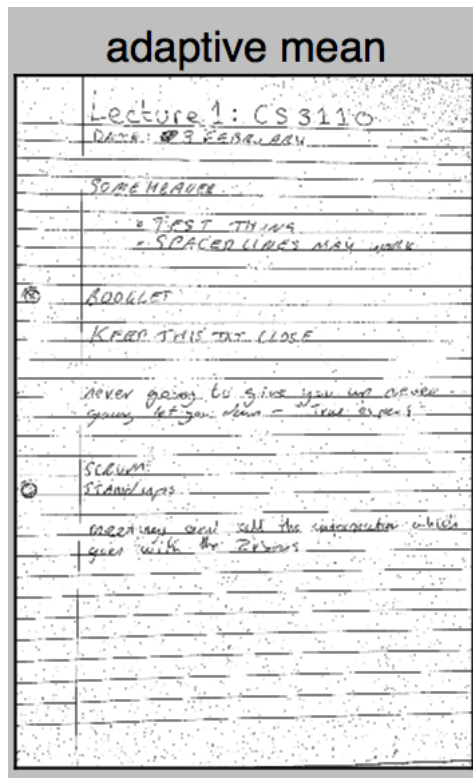 adaptive mean
Lecture 1: CS 3110
DATE: 3 FEBRUARY
SOME HEADER
• TEST THING
• SPACED LINES MAY WORK
BOOKLET
KEEP THIS TXT CLOSE
never going to give you up never
going let you down -
SCRUM:
STANDUPS
meetings and all the information which
goes with the